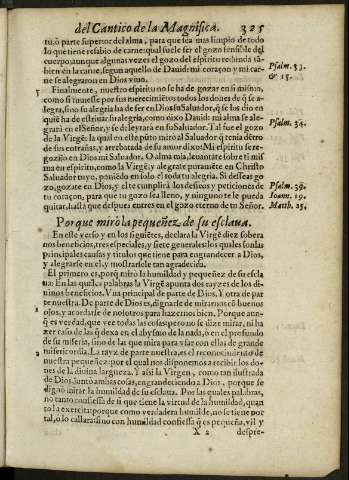 del Cantico de la Magnifica. 325
tu, ò parte superior del alma, para que sea mas limpio de todo
lo que tiene resabio de carne: qual suele ser el gozo sensible del
cuerpo, aunque algunas vezes el gozo del espiritu redunda tã-
bien en la carne, segun aquello de Dauid: mi coraçon y mi car-
ne se alegraron en Dios viuo.
Psalm. 83.
& 15.
Finalmente, nuestro espiritu no se ha de gozar en si mismo,
como si tuuesse por sus merecimiẽtos todos los dones de q̃ se a-
legra, sino su alegria ha de ser en Dios su Saluador, q̃ se los dio en
quiẽ ha de estriuar su alegria, como dixo Dauid: mi alma se ale-
grarà en el Señor, y se deleytarà en su Saluador. Tal fue el gozo
Psalm. 34.
de la Virgẽ: la qual en este pũto mirò al Saluador q̃ tenia dẽtro
de sus entrañas, y arrebatada de su amor dixo: Mi espiritu se re-
gozijò en Dios mi Saluador. O alma mia, leuantate sobre ti mis-
ma en espiritu, como la Virgẽ, y alegrate puramẽte en Christo
Saluador tuyo, poniẽdo en solo el toda tu alegria. Si desseas go-
zo, gozate en Dios, y el te cumplirà los desseos y peticiones de
Psalm. 39.
tu coraçon, para que tu gozo sea lleno, y ninguno te le pueda
Ioann. 19.
quitar, hasta que despues entres en el gozo eterno de tu Señor.
Matth. 25.
Porque mirò la pequeñez de su esclaua.
En este verso y en los siguiẽtes, declara la Virgẽ diez sobera
nos beneficios, tres especiales, y siete generales: los quales son las
principales causas y titulos que tiene para engrandecer a Dios,
y alegrarse en el, y mostrarsele tan agradecida.
El primero es, porq̃ mirò la humildad y pequeñez de su escla
ua: En las quales palabras la Virgẽ apunta dos rayzes de los di-
uinos beneficios. Vna principal de parte de Dios. Y otra de par
te nuestra. De parte de Dios es, dignarse de mirarnos cõ buenos
ojos, y acordarse de nosotros para hazernos bien. Porque aun-
q̃ es verdad, que vee todas las cosas pero no se dize mirar, ni ha
zer caso de las q̃ dexa en el abysmo de la nada, ò en el profundo
de su miseria, sino de las que mira para vsar con ellas de grande
misericordia. La rayz de parte nuestra, es el reconocimiẽto de
nuestra pequeñez: por el qual nos disponemos a recibir los do-
nes de la diuina largueza. Y assi la Virgen, como tan ilustrada
de Dios, juntò ambas cosas, engrandeciendo a Dios, porque se
dignò mirar la humildad de su esclaua. Por las quales palabras,
no tanto confiessa de si que tiene la virtud de la humildad, quan
to la exercita: porque como verdadera humilde, no se tiene por
tal, ò lo callara: sino con humildad confiessa q̃ es pequeña, vil y
X 2 despre-